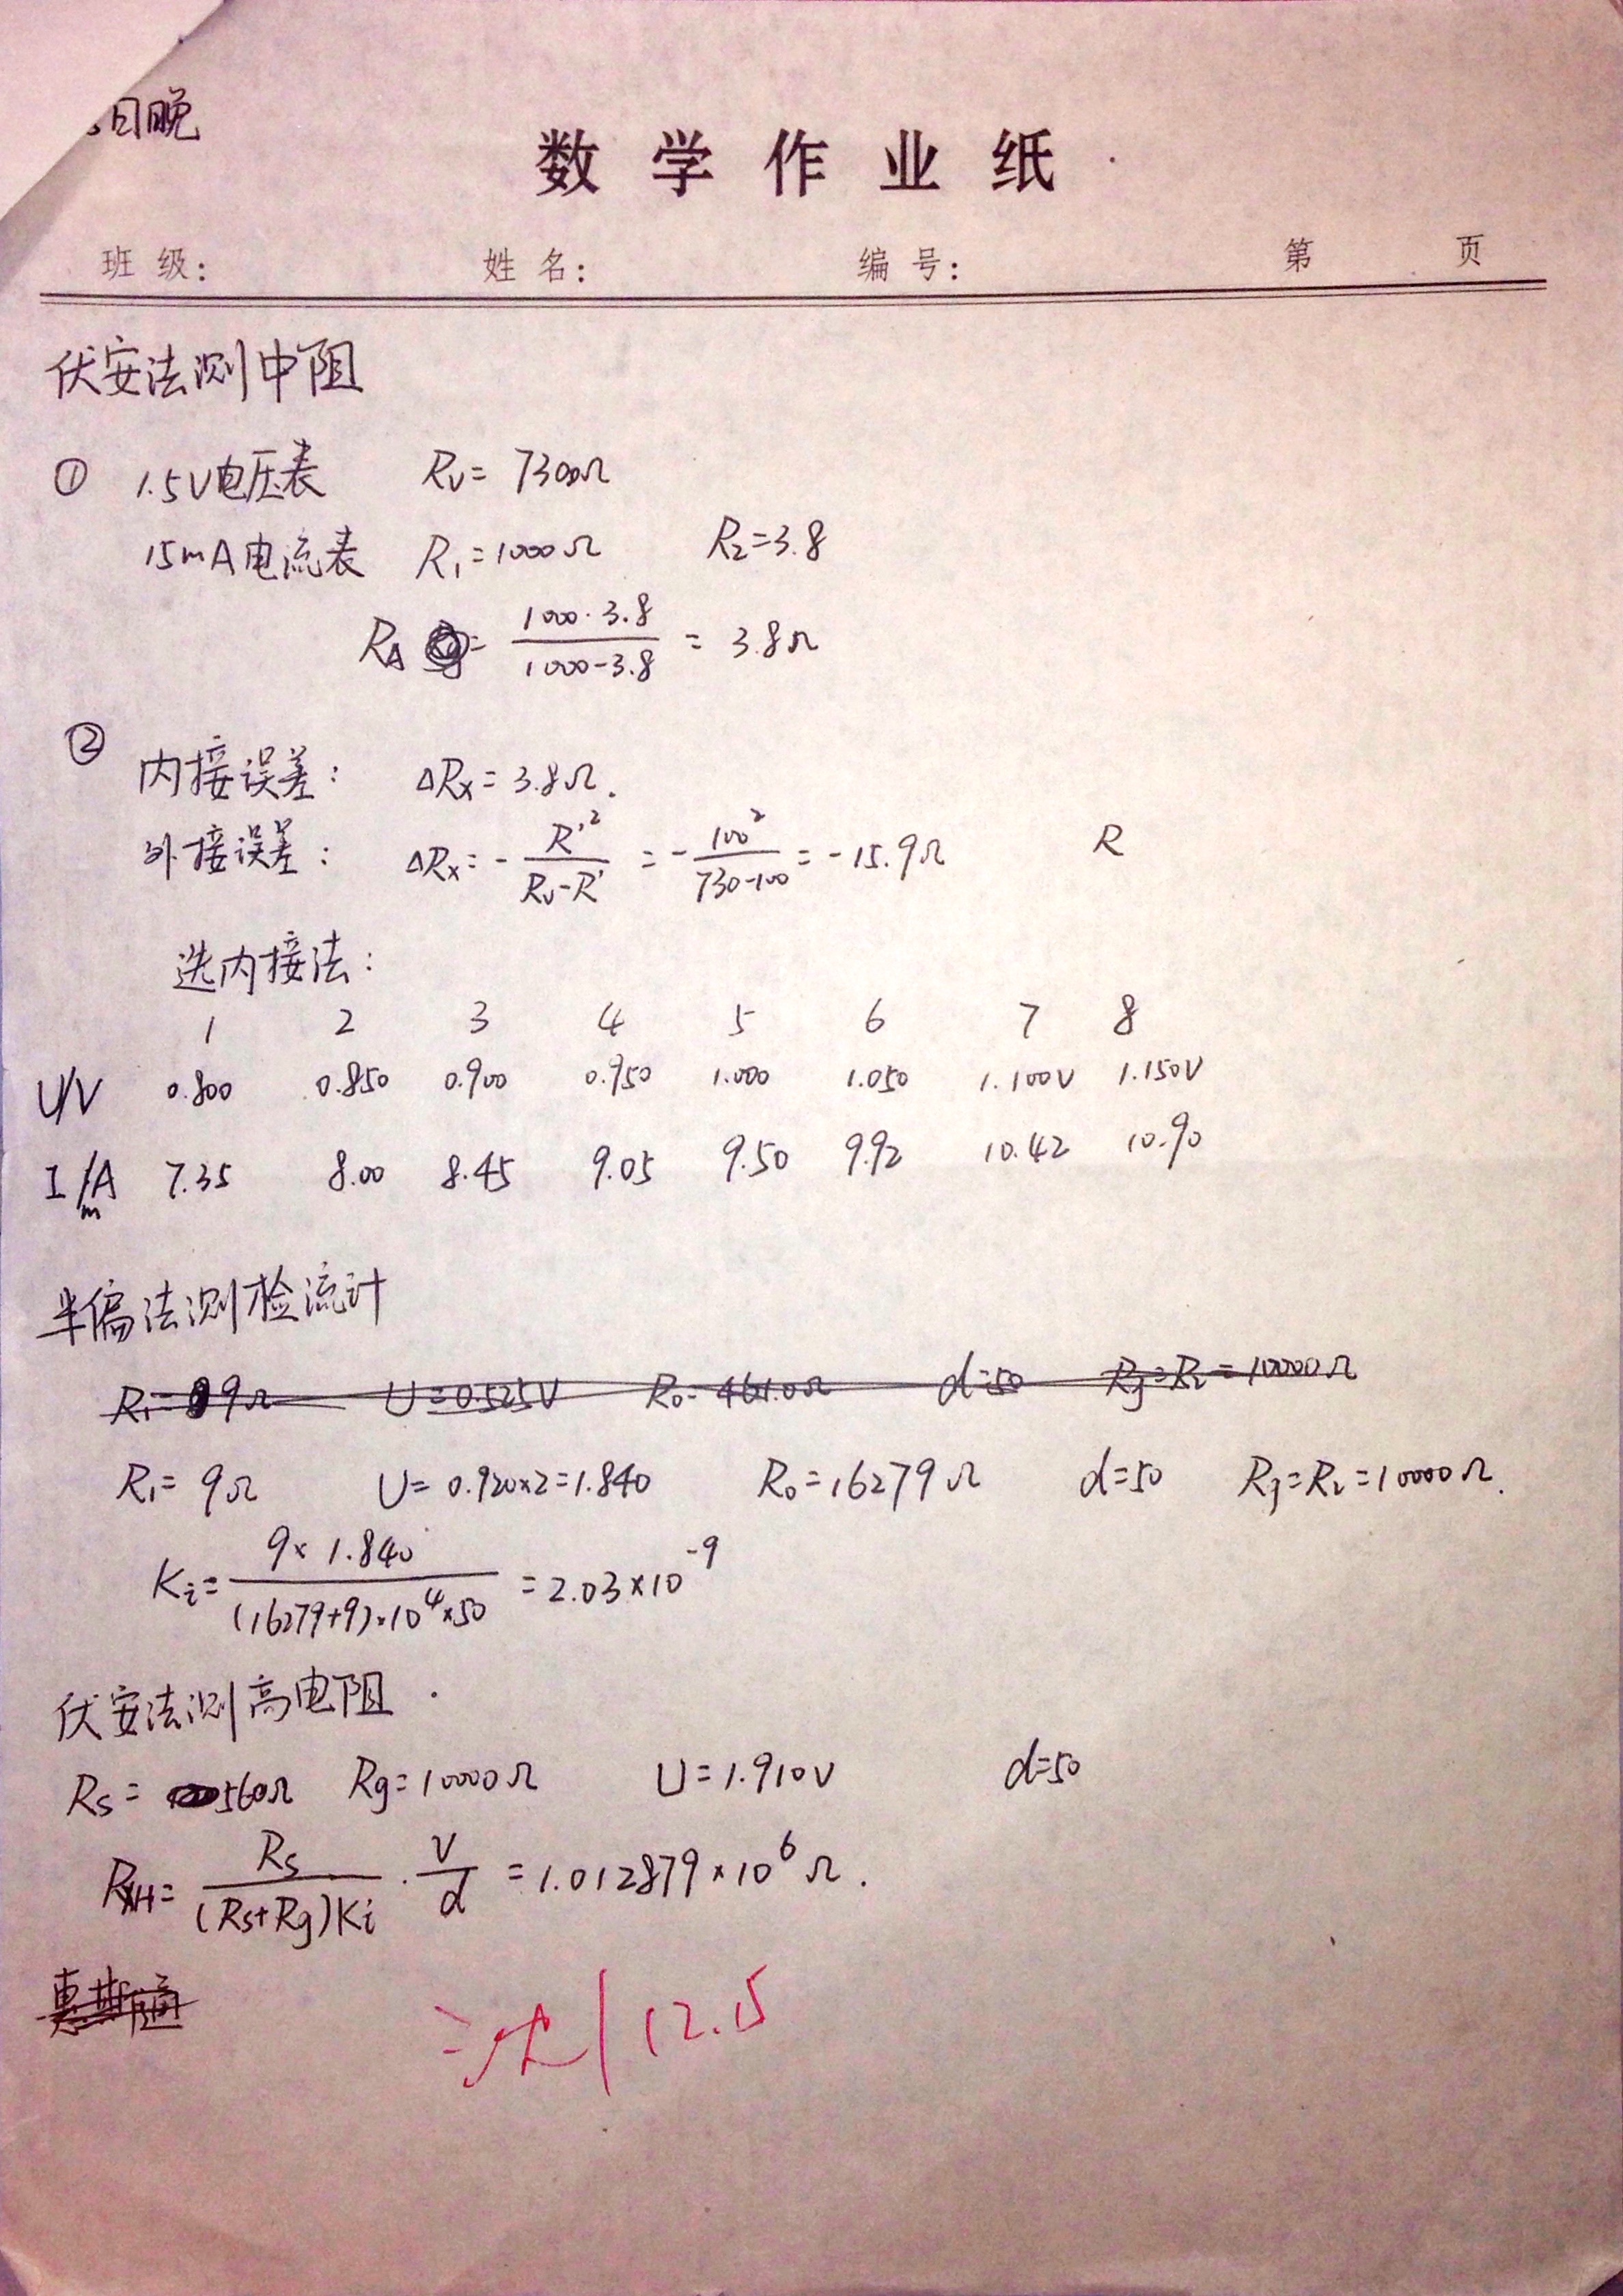 日晚
数学作业纸
班级: 姓名: 编号: 第 页
伏安法测中阻
① 1.5V电压表 Rv= 7300Ω
15mA电流表 R₁=1000Ω R₂=3.8
R_A = (1000·3.8)/(1000-3.8) = 3.8Ω
② 内接误差: ΔRx=3.8Ω.
外接误差: ΔRx=-R'²/(Rv-R') =-100²/(730-100)=-15.9Ω R
选内接法:
1 2 3 4 5 6 7 8
U/V 0.800 0.850 0.900 0.950 1.000 1.050 1.100V 1.150V
I/mA 7.35 8.00 8.45 9.05 9.50 9.92 10.42 10.90
半偏法测检流计
R₁=9Ω U=0.525V R₀=4621.0Ω d=50 Rg=R₂=10000Ω
R₁=9Ω U=0.920×2=1.840 R₀=16279Ω d=50 Rg=R₂=10000Ω.
Ki=(9×1.840)/((16279+9)×10⁴×50) =2.03×10⁻⁹
伏安法测高电阻.
Rs=560Ω Rg=10000Ω U=1.910V d=50
RxH=Rs/((Rs+Rg)Ki)·V/d =1.012879×10⁶Ω.
惠斯通
12.15